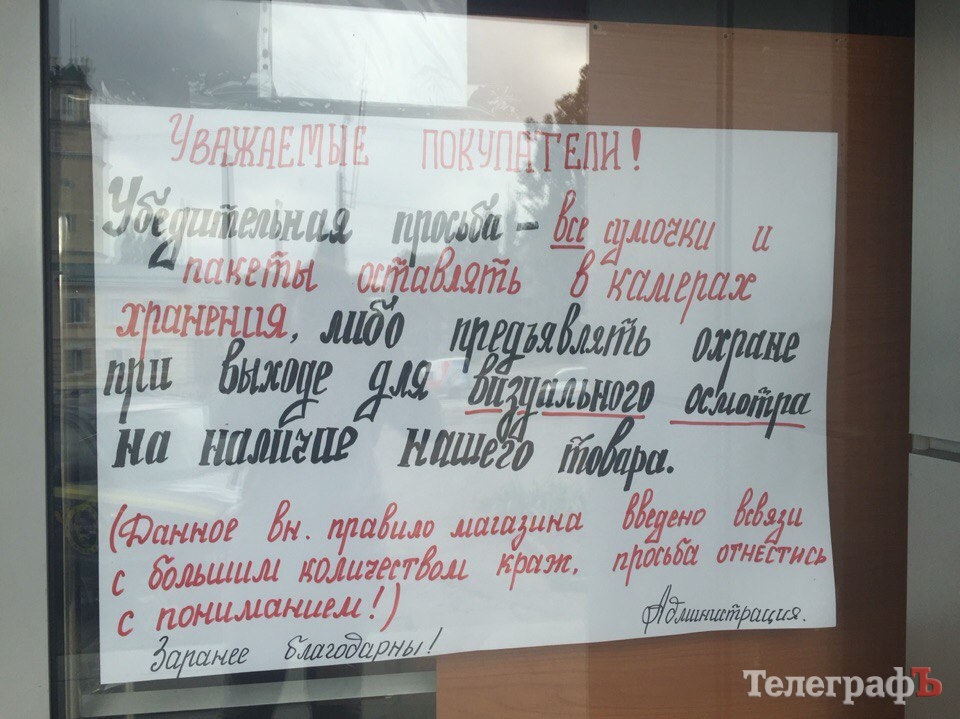 Уважаемые покупатели!
Убедительная просьба – все сумочки и
пакеты оставлять в камерах
хранения, либо предъявлять охране
при выходе для визуального осмотра
на наличие нашего товара.
(Данное вн. правило магазина введено всвязи
с большим количеством краж, просьба отнестись
с пониманием!)
Администрация.
Заранее благодарны!
ТелеграфЪ